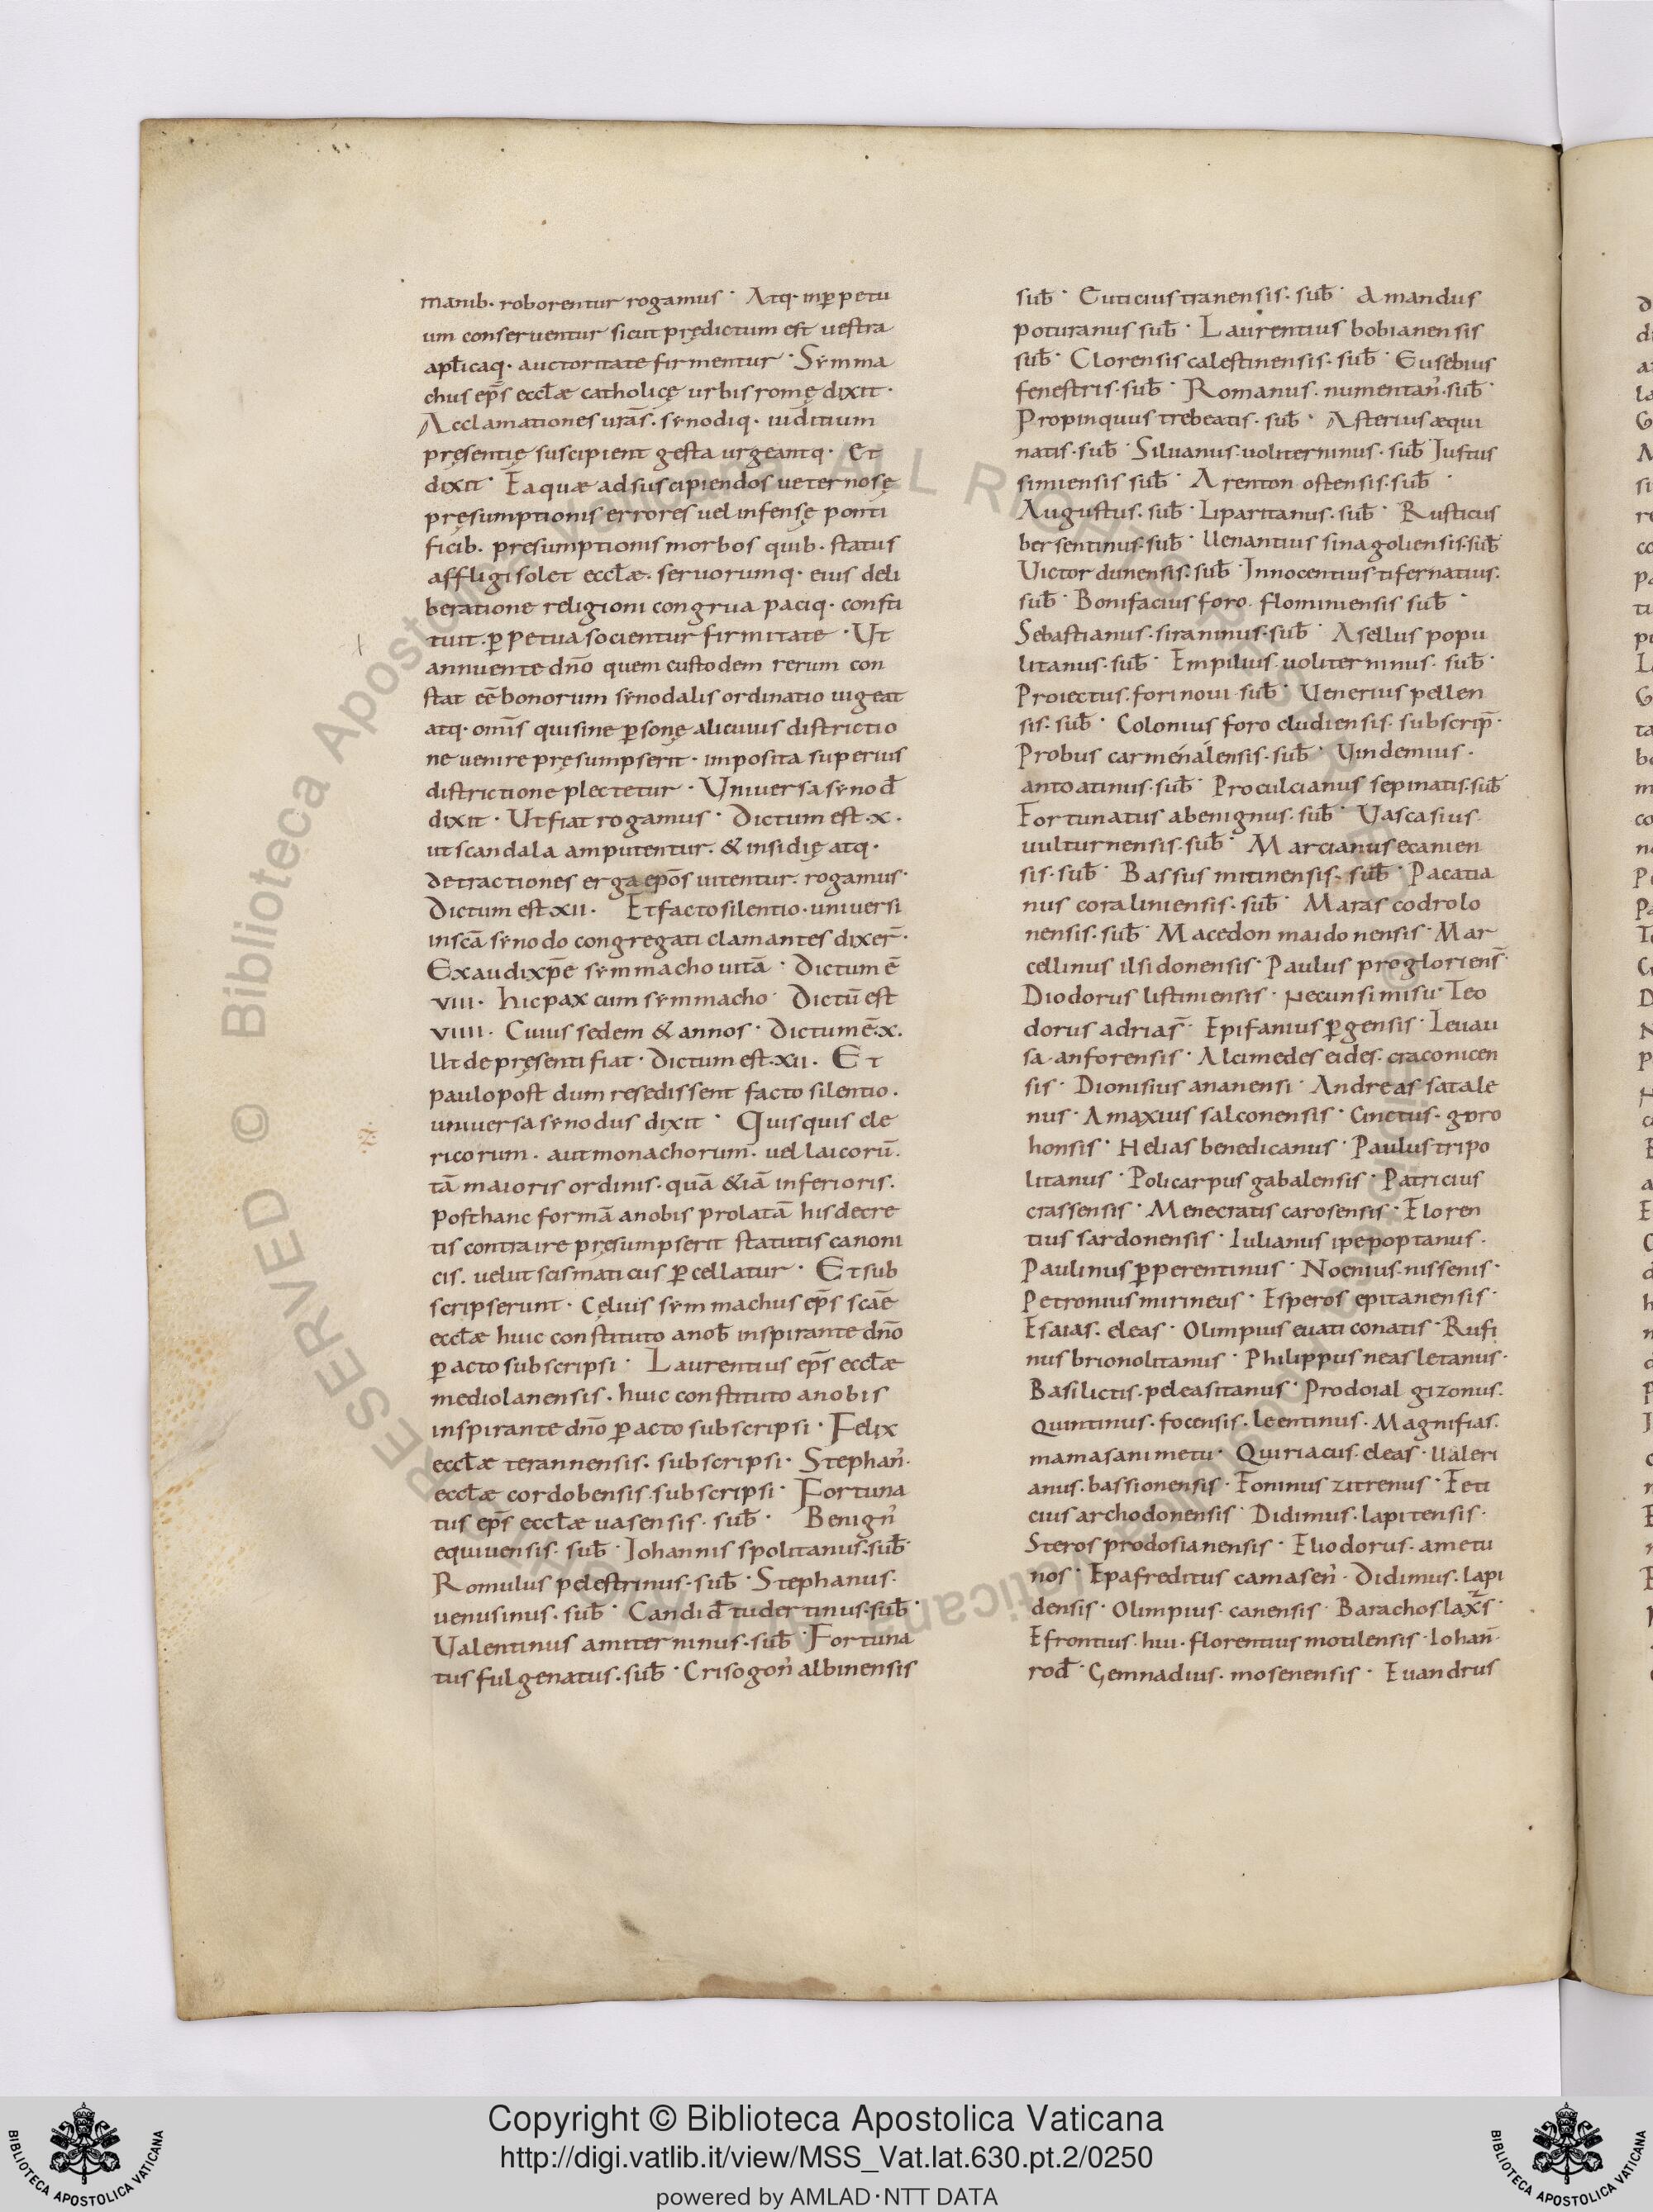 manib· roborentur rogamus· Atq· inp̱petu
um conseruentur sicut prędictum est uestra
apłicaq· auctoritate firmentur· Symma
chus ep̄s eccłæ catholicę urbis romę dixit·
Acclamationes urās· synodiq· iud̄itium
presentię suscipient gesta urgeantq· Et
dixit· Ea quæ ad suscipiendos ueternosę
pręsumptionis errores uel infensę ponti
ficib· presumptionis morbos quib· status
affligi solet eccłæ· seruorumq· eius deli
beratione religioni congrua paciq· consti
tuit· p̱petua socientur firmitate· Ut
annuente dn̄o quem custodem rerum con
stat eē bonorum synodalis ordinatio uigeat
atq· omīs qui sine p̱sonę alicuius districtio
ne uenire pręsumpserit· imposita superius
districtione plectetur· Uniuersa synod̄
dixit· Ut fiat rogamus· Dictum est·x·
ut scandala amputentur· & insidię atq·
detractiones erga ep̄os uitentur· rogamus·
Dictum est·xii· Et facto silentio· uniuersi
in scā synodo congregati clamantes dixer̄·
Exaudi xp̄e symmacho uitā· Dictum ē
viii· hic pax cum symmacho· Dictū est
viiii· Cuius sedem & annos· Dictum ē·x·
Ut de pręsenti fiat· Dictum est·xii· Et
paulo post dum resedissent facto silentio·
uniuersa synodus dixit· Quisquis cle
ricorum· aut monachorum· uel laicorū·
tā maioris ordinis· quā &iā inferioris·
posthanc formā a nobis prolatā his decre
tis contraire pręsumpserit statutis canoni
cis· uelut scismaticus p̱cellatur· Et sub
scripserunt· Cęluis symmachus ep̄s scāe
eccłæ huic constituto a nob̄ inspirante dn̄o
p̱acto subscripsi· Laurentius ep̄s eccłæ
mediolanensis· huic constituto a nobis
inspirante dn̄o p̱acto subscripsi· Felix
eccłæ terannensis· subscripsi· Stephan̄·
eccłæ cordobensis· subscripsi· Fortuna
tus ep̄s eccłæ uasensis· sub̄· Benign̄
equiuensis· sub̄· Johannis spolitanus· sub̄·
Romulus pelestrinus· sub̄· Stephanus·
uenusinus· sub̄· Candid̄ tudertinus· sub̄·
Ualentinus amiterninus· sub̄· Fortuna
tus fulgenatus· sub̄· Crisogon̄ albinensis
sub̄· Euticius tranensis· sub̄· Amandus
poturanus sub̄· Laurentius bobianensis
sub̄· Clorensis calestinensis· sub̄· Eusebius
fenestris· sub̄· Romanus· numentan̄· sub̄·
Propinquus trebeatis· sub̄· Asterius æqui
natis· sub̄· Siluanus· uoliterninus· sub̄· Justus
simiensis sub̄· Arenton ostensis· sub̄·
Augustus· sub̄· Liparitanus· sub̄· Rusticus
bersentinus· sub̄· Uenantius sinagoliensis· sub̄
Uictor dunensis· sub̄· Innocentius tifernatius·
sub̄· Bonifacius foro· flominiensis sub̄·
Sebastianus· siraninus· sub̄· Asellus popu
litanus· sub̄· Empilius· uoliterninus· sub̄·
Proiectus· fori noui· sub̄· Uenerius pellen
sis· sub̄· Colonius foro cludiensis· subscrip̄·
Probus carmenalensis· sub̄· Uindemius·
antoatinus· sub̄· Proculcianus sepinatis· sub̄
Fortunatus abenignus· sub̄· Uascasius·
uulturnensis· sub̄· Marcianus ecanien
sis· sub̄· Bassus mitinensis· sub̄· Pacatia
nus coraliniensis· sub̄· Maras codrolo
nensis· sub̄· Macedon maidonensis· Mar
cellinus ilsidonensis· Paulus progloriens̄·
Diodorus listiniensis· Necunsi misu· Teo
dorus adrias̄· Epifanius p̱gensis· Leuau
sa· anforensis· Alcimedes eides· craconicen
sis· Dionisius ananensi· Andreas satale
nus· Amaxius salconensis· Cinctus· gpro
honsis· Helias benedicanus· Paulus tripo
litanus· Policarpus gabalensis· Patricius
crassensis· Menecratis carosensis· Floren
tius sardonensis· Iulianus ipepoptanus·
Paulinus p̱perentinus· Noenius· nissenis·
Petronius mirineus· Esperos epitanensis·
Esaias· eleas· Olimpius euati conatis· Rufi
nus brionolitanus· Philippus neas letanus·
Basilictis· peleasitanus· Prodoial gizonus·
Quintinus· focensis· leentinus· Magnifias·
mamasani metu· Quiriacus· eleas· Ualeri
anus· bassionensis· Foninus zitrenus· Feti
cius archodonensis· Didimus· lapitensis·
Steros prodosianensis· Eliodorus· ametu
nos· Epafreditus camasen̄· Didimus· lapi
densis· Olimpius· canensis· Barachos lax̄s·
Efrontius· hui· florentius motilensis· Iohan̄·
rod̄· Gemnadius· mosenensis· Euandrus
Copyright © Biblioteca Apostolica Vaticana
http://digi.vatlib.it/view/MSS_Vat.lat.630.pt.2/0250
powered by AMLAD·NTT DATA